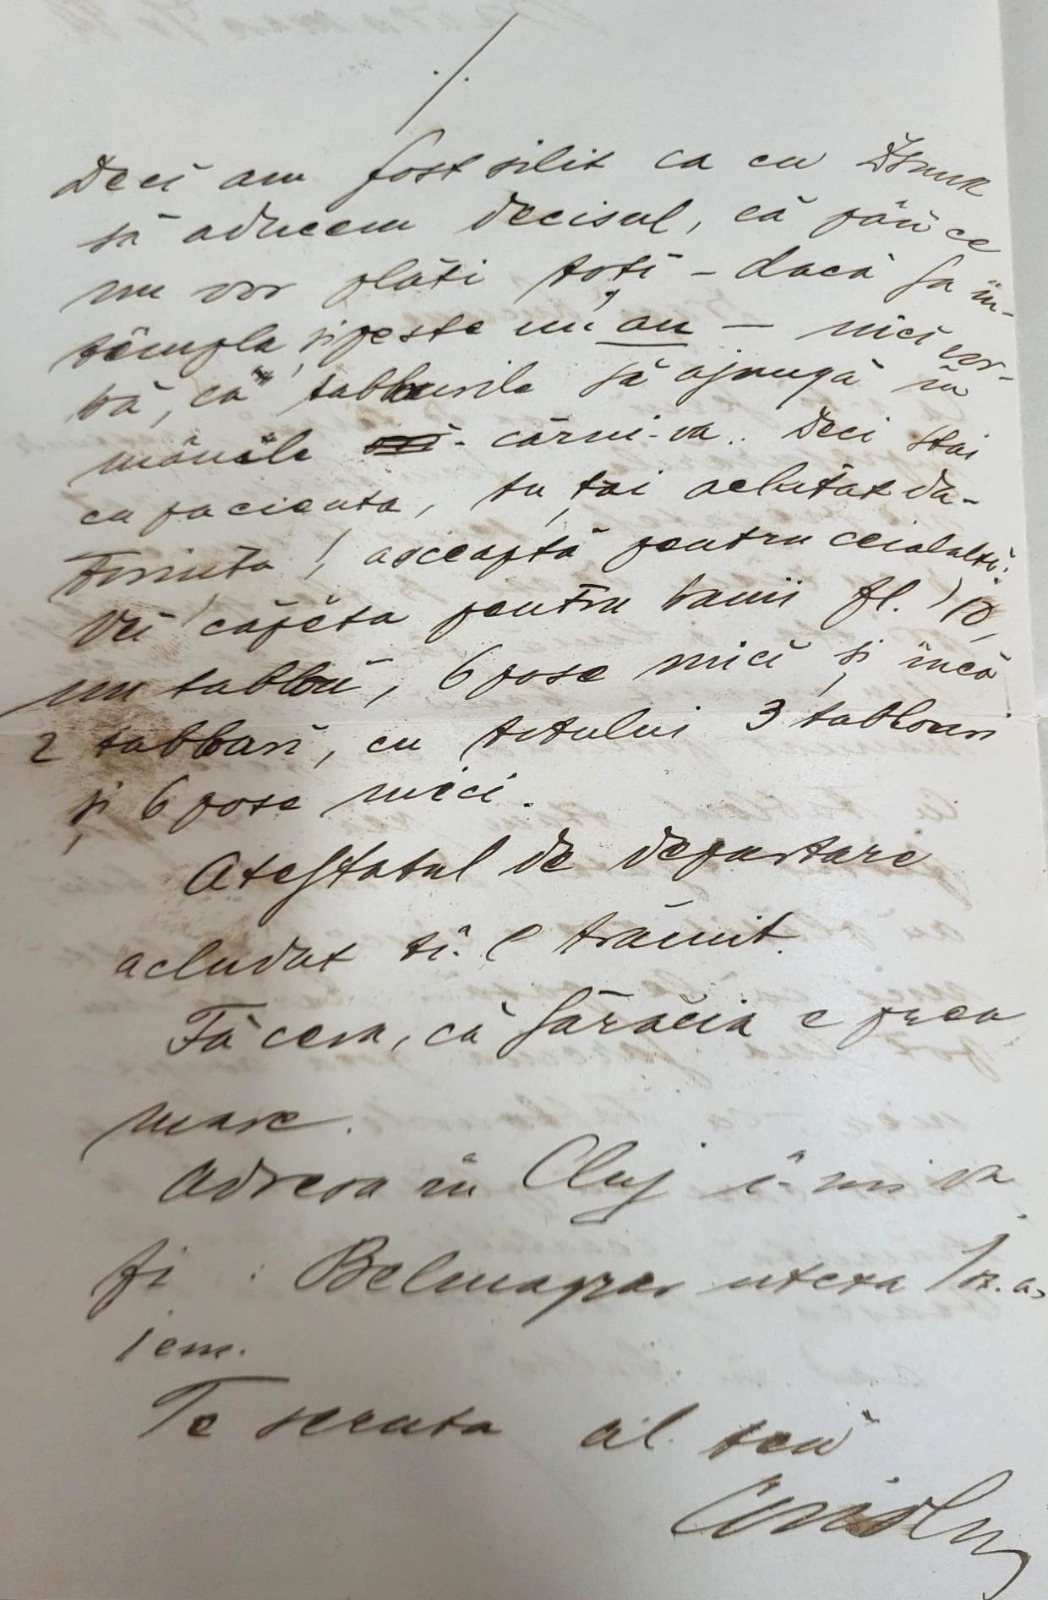 ./.
Deci am fost silit ca cu
să aducem decisul, că pănă ce
nu vor plăti toti – dacă sa în-
tĕmpla, și peste un an – nici vor-
bă, că tablourile să ajungă în
mânĕle cărui-va. Deci stai
cu pacienta, tu ți-ai achitat da-
torinta! asceaptă pentru ceialalti.
Vei căpĕta pentru banii fl. 10,
un tabloŭ, 6 pose mici și încă
2 tablouri, cu totului 3 tablouri
și 6 pose mici.
Atestatul de departare
acludat ti-l trămit.
Fă ceva, că sărăcia e prea
mare.
Adresa în Cluj î-mi va
fi : utcza 1 sz. a,
1 em.
Te seruta al tĕu